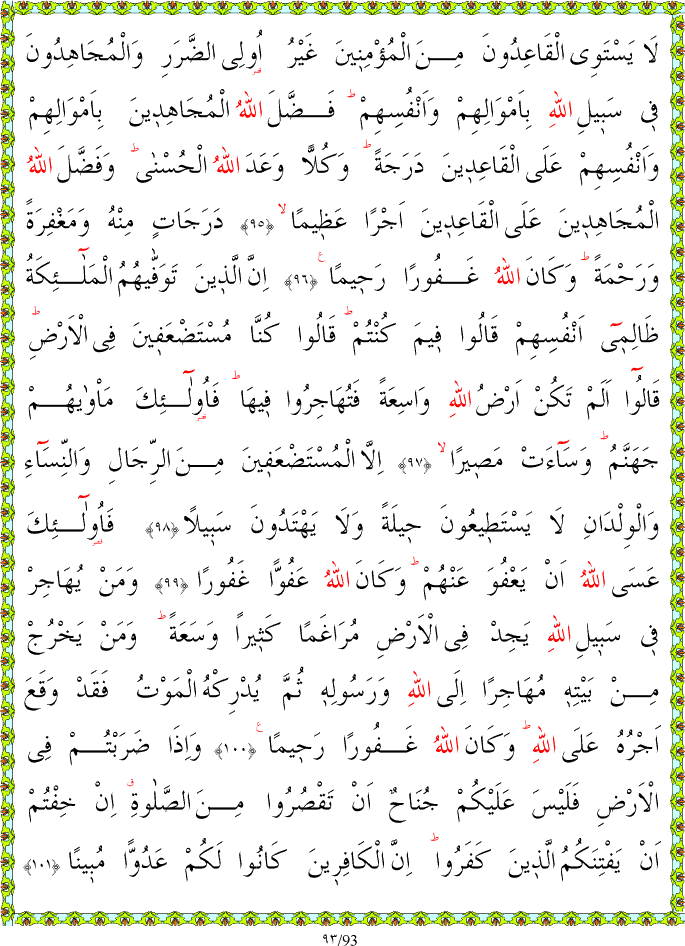 لَا يَسْتَوِى الْقَاعِدُونَ مِنَ الْمُؤْمِنِينَ غَيْرُ اُولِى الضَّرَرِ وَالْمُجَاهِدُونَ
فِى سَبِيلِ اللّٰهِ بِاَمْوَالِهِمْ وَاَنْفُسِهِمْ ؕ فَضَّلَ اللّٰهُ الْمُجَاهِدِينَ بِاَمْوَالِهِمْ
وَاَنْفُسِهِمْ عَلَى الْقَاعِدِينَ دَرَجَةً ؕ وَكُلًّا وَعَدَ اللّٰهُ الْحُسْنٰى ؕ وَفَضَّلَ اللّٰهُ
الْمُجَاهِدِينَ عَلَى الْقَاعِدِينَ اَجْرًا عَظِيمًا ۙ ﴿٩٥﴾ دَرَجَاتٍ مِنْهُ وَمَغْفِرَةً
وَرَحْمَةً ؕ وَكَانَ اللّٰهُ غَفُورًا رَحِيمًا ﴿٩٦﴾ اِنَّ الَّذِينَ تَوَفّٰيهُمُ الْمَلٰٓئِكَةُ
ظَالِمِٓى اَنْفُسِهِمْ قَالُوا فِيمَ كُنْتُمْ ؕ قَالُوا كُنَّا مُسْتَضْعَفِينَ فِى الْاَرْضِ ؕ
قَالُٓوا اَلَمْ تَكُنْ اَرْضُ اللّٰهِ وَاسِعَةً فَتُهَاجِرُوا فِيهَا ؕ فَاُولٰٓئِكَ مَاْوٰيهُمْ
جَهَنَّمُ ؕ وَسَٓاءَتْ مَصِيرًا ۙ ﴿٩٧﴾ اِلَّا الْمُسْتَضْعَفِينَ مِنَ الرِّجَالِ وَالنِّسَٓاءِ
وَالْوِلْدَانِ لَا يَسْتَطِيعُونَ حِيلَةً وَلَا يَهْتَدُونَ سَبِيلًا ﴿٩٨﴾ فَاُولٰٓئِكَ
عَسَى اللّٰهُ اَنْ يَعْفُوَ عَنْهُمْ ؕ وَكَانَ اللّٰهُ عَفُوًّا غَفُورًا ﴿٩٩﴾ وَمَنْ يُهَاجِرْ
فِى سَبِيلِ اللّٰهِ يَجِدْ فِى الْاَرْضِ مُرَاغَمًا كَثِيراً وَسَعَةً ؕ وَمَنْ يَخْرُجْ
مِنْ بَيْتِهِ مُهَاجِرًا اِلَى اللّٰهِ وَرَسُولِهِ ثُمَّ يُدْرِكْهُ الْمَوْتُ فَقَدْ وَقَعَ
اَجْرُهُ عَلَى اللّٰهِ ؕ وَكَانَ اللّٰهُ غَفُورًا رَحِيمًا ﴿١٠٠﴾ وَاِذَا ضَرَبْتُمْ فِى
الْاَرْضِ فَلَيْسَ عَلَيْكُمْ جُنَاحٌ اَنْ تَقْصُرُوا مِنَ الصَّلٰوةِ اِنْ خِفْتُمْ
اَنْ يَفْتِنَكُمُ الَّذِينَ كَفَرُوا ؕ اِنَّ الْكَافِرِينَ كَانُوا لَكُمْ عَدُوًّا مُبِينًا ﴿١٠١﴾
٩٣/93